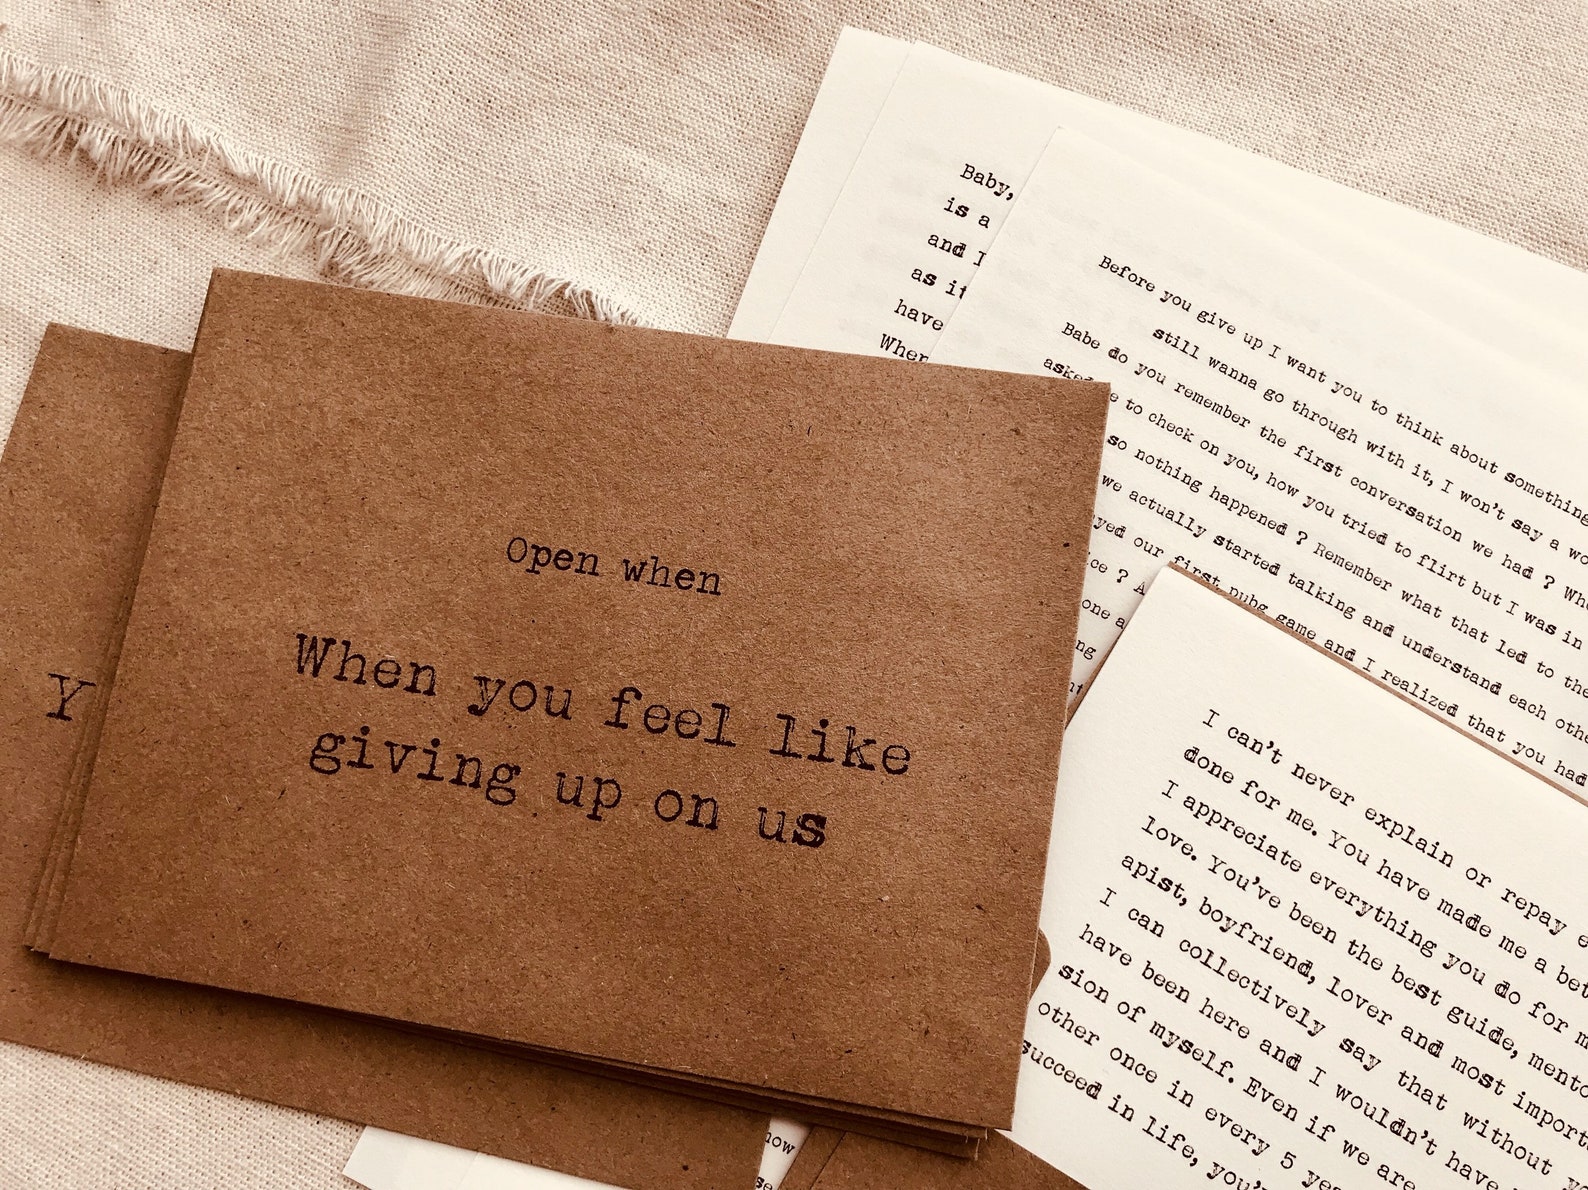 Open when
When you feel like
giving up on us
Y
Baby,
is a
and I
as it
have
Before you give up I want you to think about something
still wanna go through with it, I won't say a wo
Babe do you remember the first conversation we had ? Whe
asked to check on you, how you tried to flirt but I was in
so nothing happened ? Remember what that led to the
we actually started talking and understand each othe
yed our first pubg game and I realized that you had
ce ? A
one a
ng
I can't never explain or repay e
done for me. You have made me a bet
I appreciate everything you do for m
love. You've been the best guide, mento
apist, boyfriend, lover and most import
I can collectively say that without y
have been here and I wouldn't have
sion of myself. Even if we are
other once in every 5 ye
succeed in life, you'
now
se